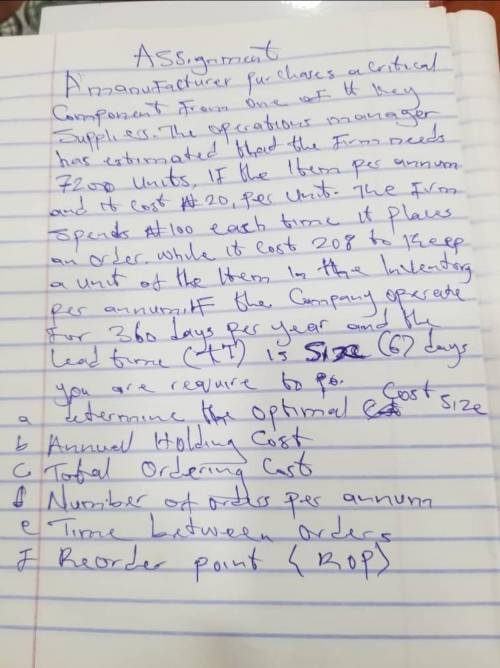 Assignment
A manufacturer purchases a critical
Component from one of it key
Suppliers. The operations manager
has estimated that the Firm needs
7200 units, IF the Item per annum
and it cost ₦ 20, per unit. The Firm
Spends ₦100 each time it places
an order. while it cost 208 to keep
a unit of the Item in the Inventory
per annum. IF the Company operate
For 360 days per year and the
lead time (LT) is Six (6) days
you are require to
a determine the optimal Cost Size
b Annual Holding Cost
C Total Ordering Cost
d Number of orders per annum
e Time between orders
f Reorder point (ROP)